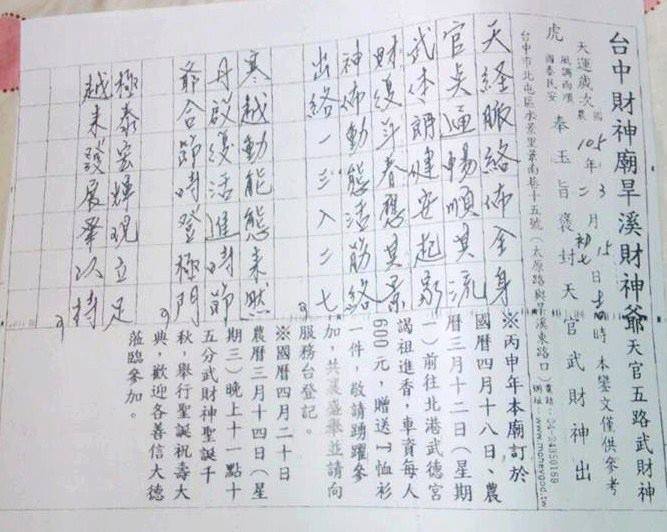 台中財神廟旱溪財神爺天官五路武財神
天運歲次 國 105年3月15日 時 本鑾文僅供參考
農 二 初七
虎 風調雨順 國泰民安 奉玉旨褒封天官武財神出
台中市北屯區水景里景南巷十五號(太原路與旱溪東路口)
天經脈絡佈全身
官兵通暢順其流
武体朗健安起
財復斗春應其景
神佈動態活筋絡
出絡一三入二七
寒越動能態未然
丹啟復活進時節
爺合節時登極門
極泰宏輝現立足
越来發展舉以持
※丙申年本廟訂於
國曆四月十八日、農
曆三月十二日(星期
一)前往北港武德宮
謁祖進香,車資每人
600元,贈送T恤衫
一件,敬請踴躍參
加,共襄盛舉並請向
服務台登記。
※國曆四月二十日
農曆三月十四日(星
期三)晚上十一點十
五分武財神聖誕千
秋,舉行聖誕祝壽大
典,歡迎各善信大德
蒞臨參加。